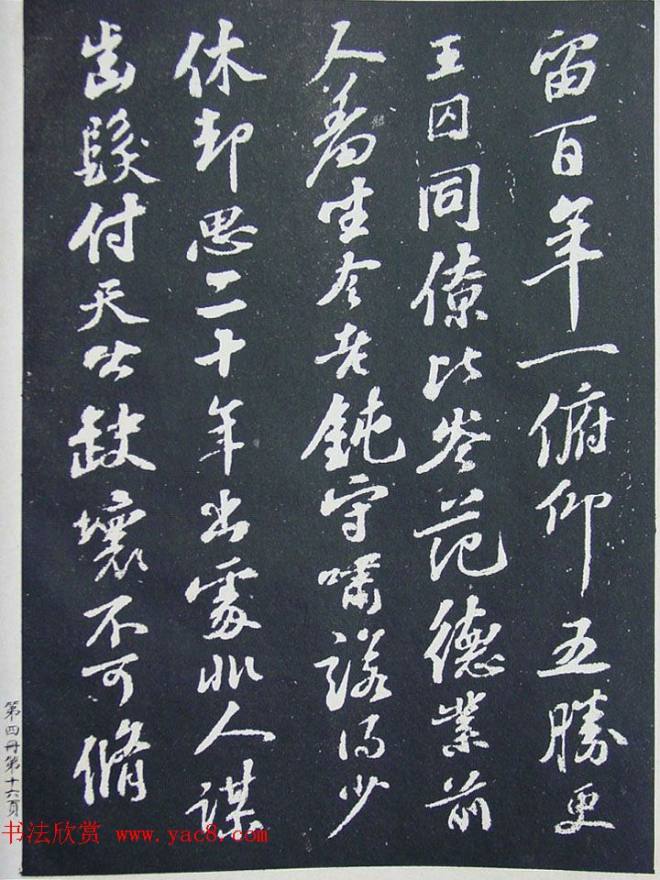 留百年一俯仰五勝更
王囚同僚比岑范德業前
人羞坐令老鈍守嘯諾得少
休却思二十年出處非人謀
齒髮付天公缺壞不可脩
第四冊第十六頁
书法欣赏 www.yac8.com